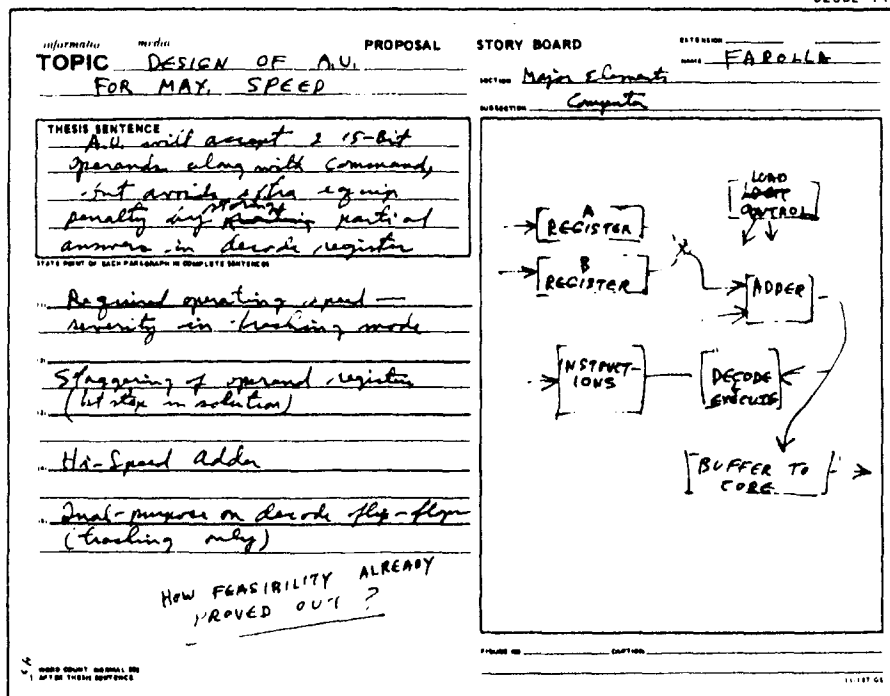 informatio media
PROPOSAL STORY BOARD
TOPIC DESIGN OF A.U.
FOR MAX. SPEED
EXTENSION
NAME FAROLLA
SECTION Major Elements
SUBSECTION Computer
THESIS SENTENCE
A.U. will accept 2 15-Bit
operands along with command,
but avoids extra equip
penalty by storing partial
answers in decode register
STATE POINT OF EACH PARAGRAPH IN COMPLETE SENTENCES
Required operating speed —
severity in tracking mode
Staggering of operand registers
(1st step in solution)
Hi-Speed Adder
Dual-purpose on decode flip-flops
(tracking only)
HOW FEASIBILITY ALREADY
PROVED OUT?
WORD COUNT NORMAL
AFTER THESIS SENTENCE
A
REGISTER
B
REGISTER
LOAD
CONTROL
ADDER
INSTRUCT-
IONS
DECODE
&
EXECUTE
BUFFER TO
CORE
FIGURE NO CAPTION